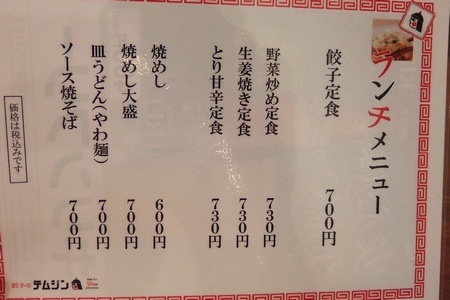 ランチメニュー
餃子定食 700円
野菜炒め定食 730円
生姜焼き定食 730円
とり甘辛定食 730円
焼めし 600円
焼めし大盛 700円
皿うどん(やわ麺) 700円
ソース焼そば 700円
価格は税込みです
餃子のテムジン